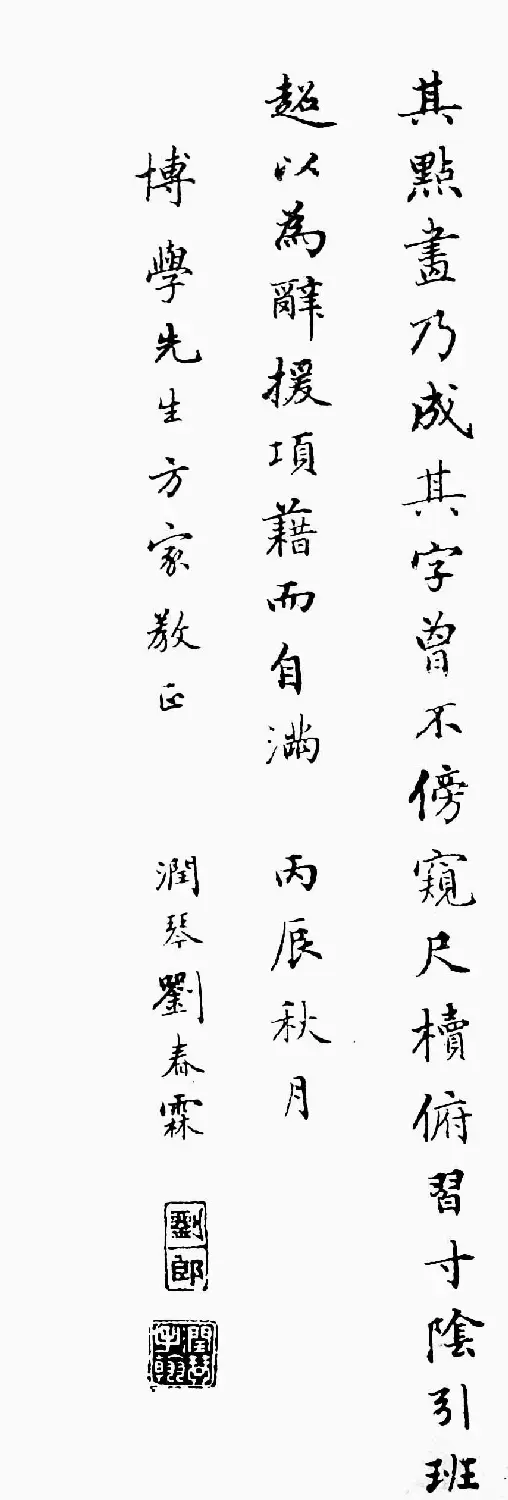 其點畫乃成其字曾不傍窺尺牘俯習寸陰引班
超以為辭援項藉而自滿 丙辰秋月
博學先生方家教正
潤琴劉春霖
劉郎